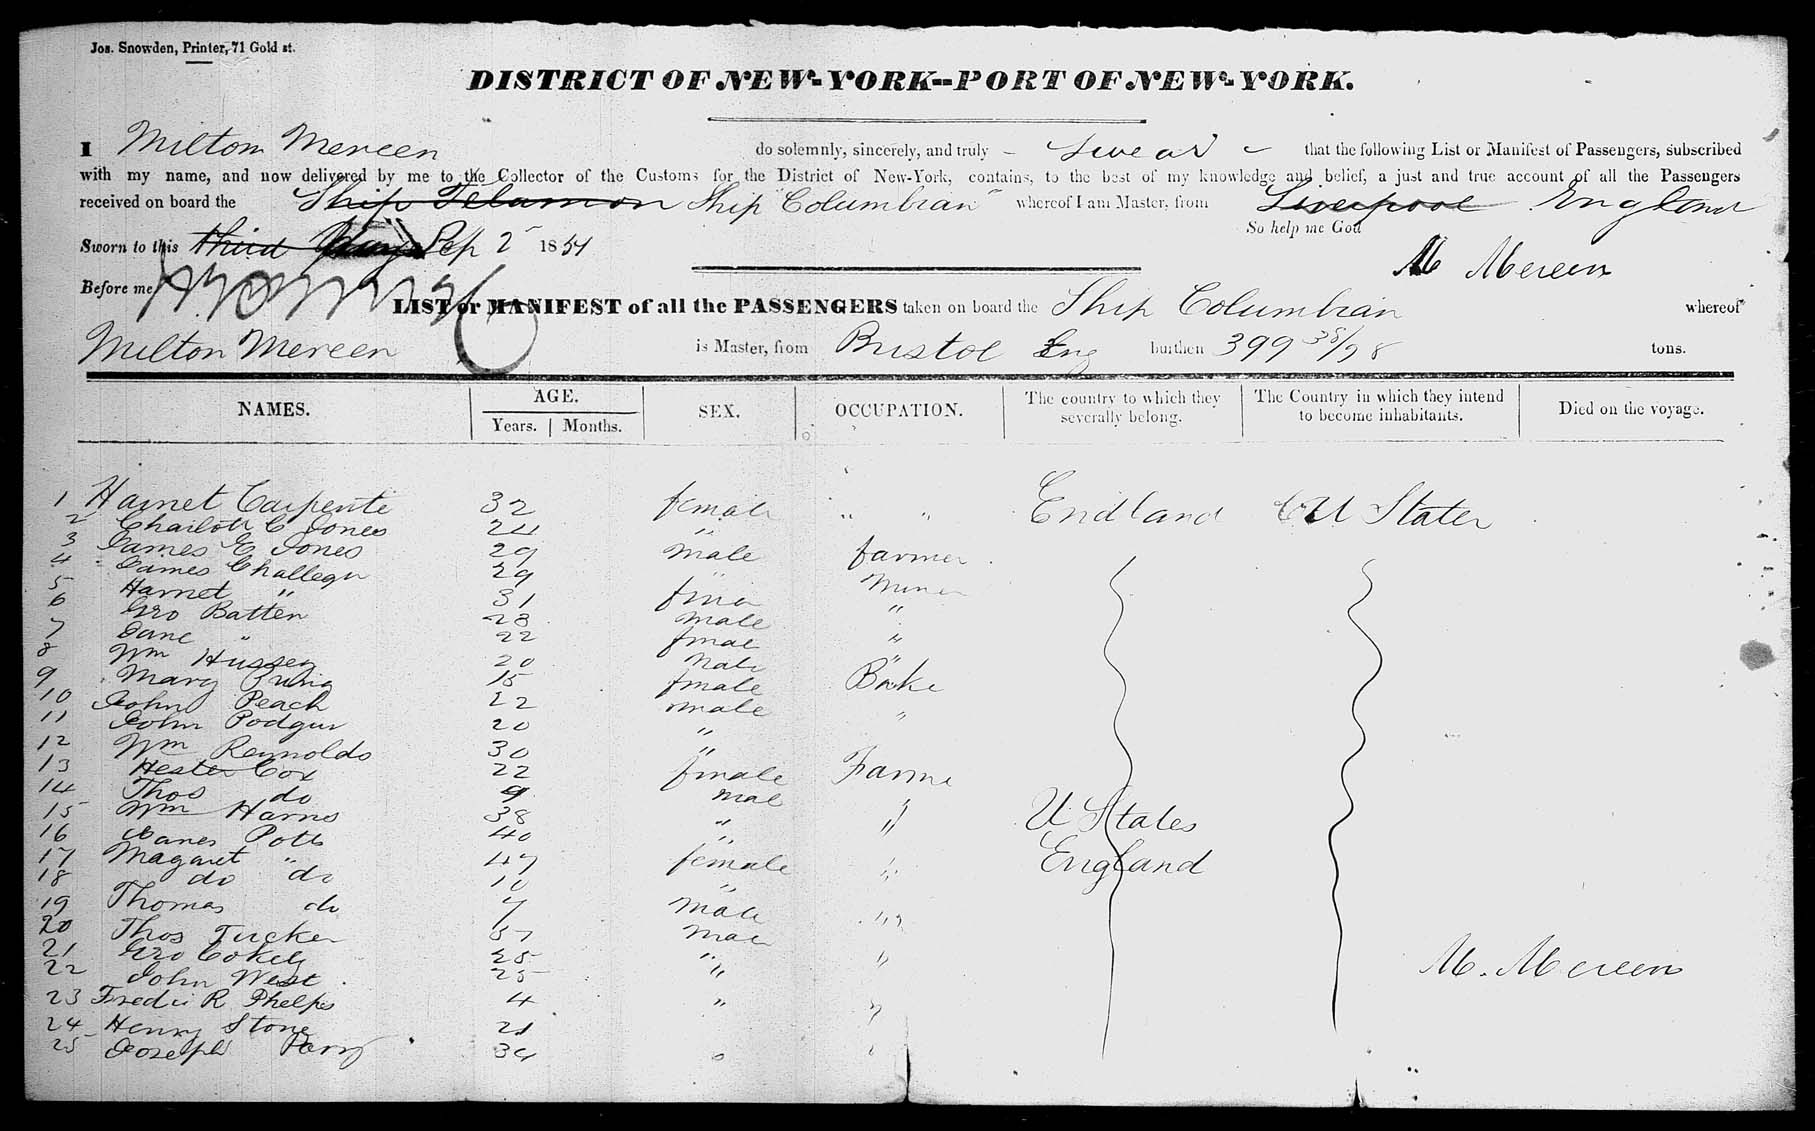 Jos. Snowden, Printer, 71 Gold st.
DISTRICT OF NEW-YORK--PORT OF NEW-YORK.
I Milton Mereen do solemnly, sincerely, and truly - swear - that the following List or Manifest of Passengers, subscribed
with my name, and now delivered by me to the Collector of the Customs for the District of New-York, contains, to the best of my knowledge and belief, a just and true account of all the Passengers
received on board the Ship Telamon Ship "Columbian" whereof I am Master, from Liverpool England
So help me God
Sworn to this third Sep 2 1851
M Mereen
Before me
LIST or MANIFEST of all the PASSENGERS taken on board the Ship Columbian whereof
Milton Mereen is Master, from Bristol Eng burthen 399 tons.
NAMES. AGE. SEX. OCCUPATION. The country to which they severally belong. The Country in which they intend to become inhabitants. Died on the voyage.
Years. Months.
1 Harriet Carpente 32 female " " Endland U States
2 Charlott C Jones 24 "
3 James E Jones 29 male farmer
4 James 29 "
5 Harriet " 31 Miner
6 Geo Batten 28 male "
7 Jane " 22 fmale "
8 Wm Hussey 20 male "
9 Mary 15 fmale Bake
10 John Peach 22 male "
11 John 20 "
12 Wm Reynolds 30 "
13 Hester Cox 22 female Farme
14 Thos do 9 mal "
15 Wm Harris 38 " " U States
16 Potts 40 "
17 Magaret " 47 female " England
18 do do 10 "
19 Thomas do 7 male "
20 Thos Tucker 37 male
21 Geo 25 " "
22 John West 25 "
M. Mereen
23 Fredic R Phelps 4 " "
24 Henry Stone 21
25 Joseph Parry 34 "